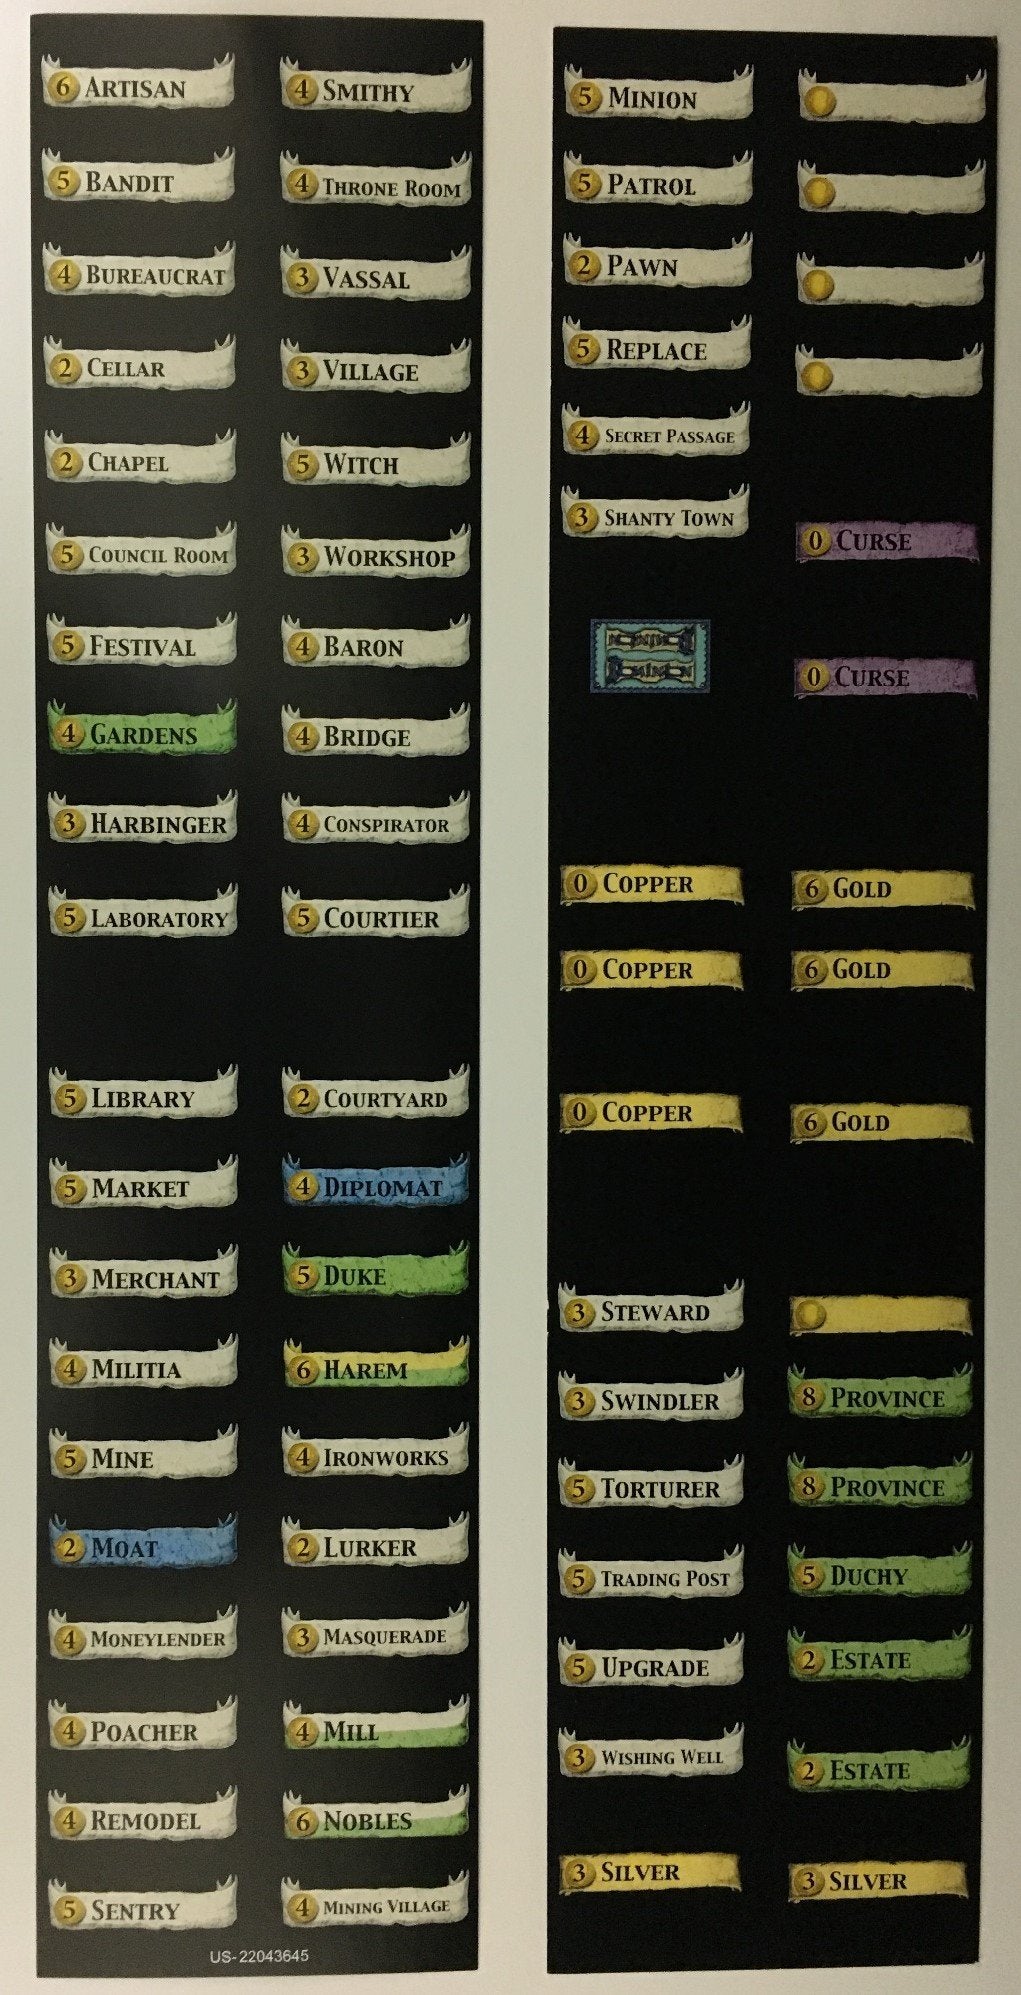 6 ARTISAN
5 BANDIT
4 BUREAUCRAT
2 CELLAR
2 CHAPEL
5 COUNCIL ROOM
5 FESTIVAL
4 GARDENS
3 HARBINGER
5 LABORATORY
5 LIBRARY
5 MARKET
3 MERCHANT
4 MILITIA
5 MINE
2 MOAT
4 MONEYLENDER
4 POACHER
4 REMODEL
5 SENTRY
4 SMITHY
4 THRONE ROOM
3 VASSAL
3 VILLAGE
5 WITCH
3 WORKSHOP
4 BARON
4 BRIDGE
4 CONSPIRATOR
5 COURTIER
2 COURTYARD
4 DIPLOMAT
5 DUKE
6 HAREM
4 IRONWORKS
2 LURKER
3 MASQUERADE
4 MILL
6 NOBLES
4 MINING VILLAGE
US-22043645
5 MINION
5 PATROL
2 PAWN
5 REPLACE
4 SECRET PASSAGE
3 SHANTY TOWN
DOMINION
DOMINION
0 COPPER
0 COPPER
0 COPPER
3 STEWARD
3 SWINDLER
5 TORTURER
5 TRADING POST
5 UPGRADE
3 WISHING WELL
3 SILVER
0 CURSE
0 CURSE
6 GOLD
6 GOLD
6 GOLD
8 PROVINCE
8 PROVINCE
5 DUCHY
2 ESTATE
2 ESTATE
3 SILVER